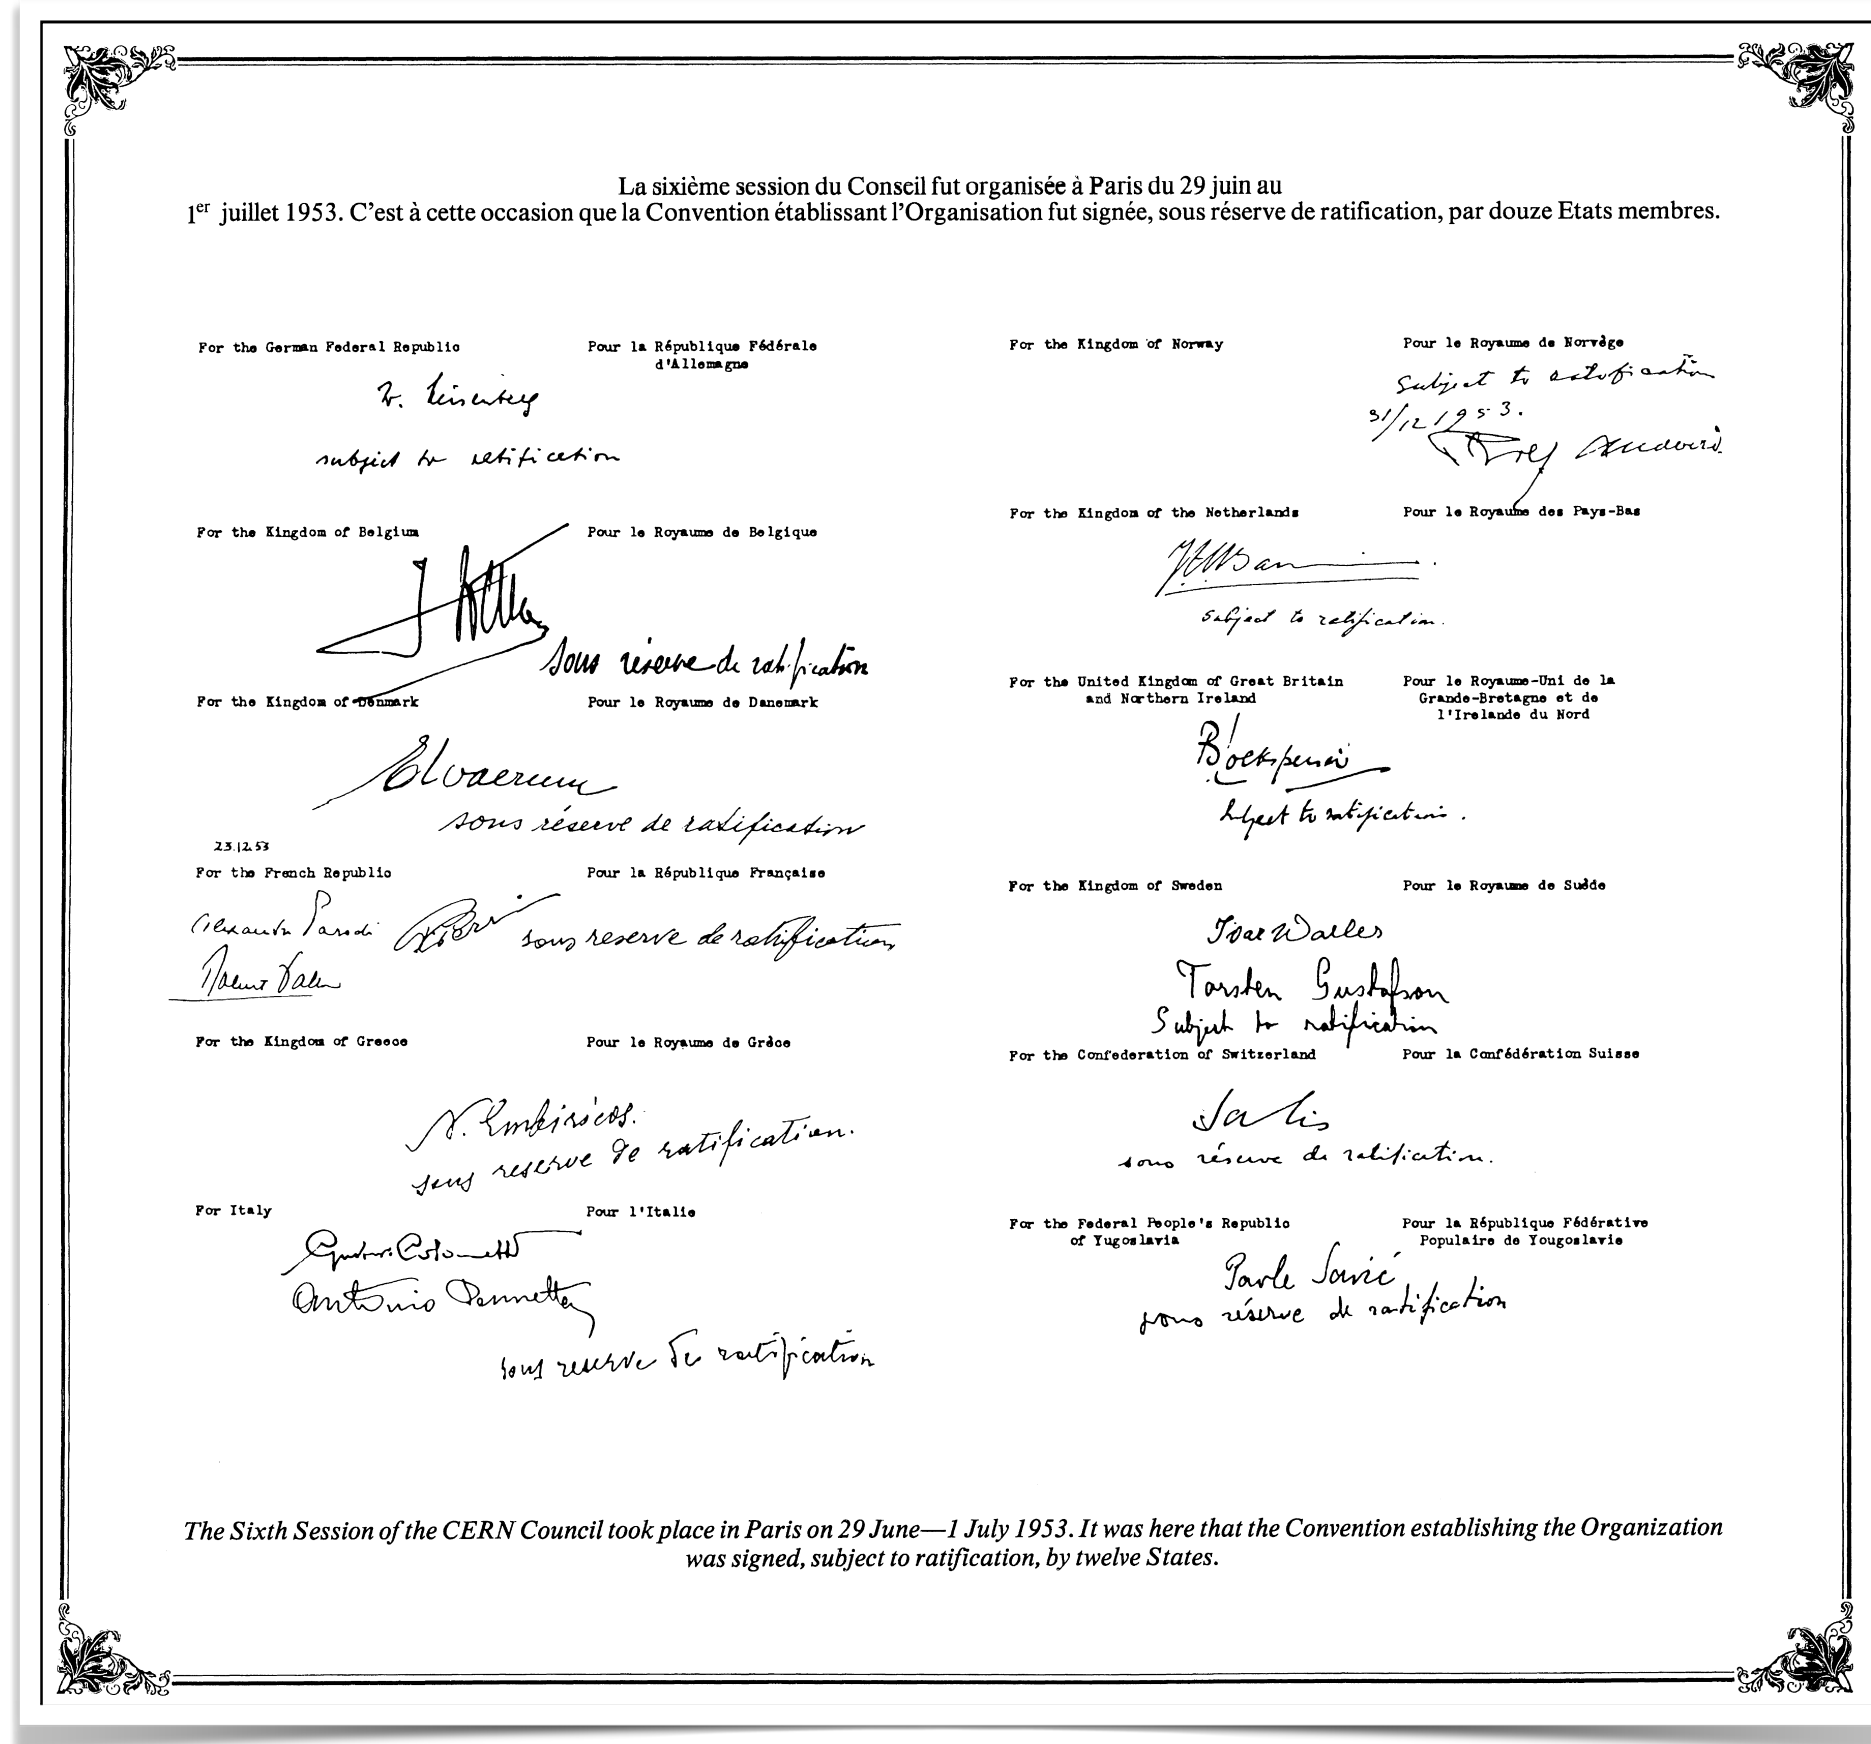 La sixième session du Conseil fut organisée à Paris du 29 juin au
1er juillet 1953. C'est à cette occasion que la Convention établissant l'Organisation fut signée, sous réserve de ratification, par douze Etats membres.
For the German Federal Republic
Pour la République Fédérale
d'Allemagne
W. Heisenberg
subject to ratification
For the Kingdom of Belgium
Pour le Royaume de Belgique
sous réserve de ratification
For the Kingdom of Denmark
Pour le Royaume de Danemark
sous réserve de ratification
23.12.53
For the French Republic
Pour la République Française
Alexandre Parodi
sous reserve de ratification
For the Kingdom of Greece
Pour le Royaume de Grèce
N. Embiricos.
sous reserve de ratification.
For Italy
Pour l'Italie
Gustavo Colonnetti
Antonio Pennetta
sous reserve de ratification
For the Kingdom of Norway
Pour le Royaume de Norvège
Subject to ratification
31/12 1953.
For the Kingdom of the Netherlands
Pour le Royaume des Pays-Bas
subject to ratification.
For the United Kingdom of Great Britain
and Northern Ireland
Pour le Royaume-Uni de la
Grande-Bretagne et de
l'Irelande du Nord
subject to ratification.
For the Kingdom of Sweden
Pour le Royaume de Suède
Ivar Waller
Torsten Gustafson
Subject to ratification
For the Confederation of Switzerland
Pour la Confédération Suisse
Salis
sous réserve de ratification.
For the Federal People's Republic
of Yugoslavia
Pour la République Fédérative
Populaire de Yougoslavie
Pavle Savić
sous réserve de ratification
The Sixth Session of the CERN Council took place in Paris on 29 June—1 July 1953. It was here that the Convention establishing the Organization
was signed, subject to ratification, by twelve States.